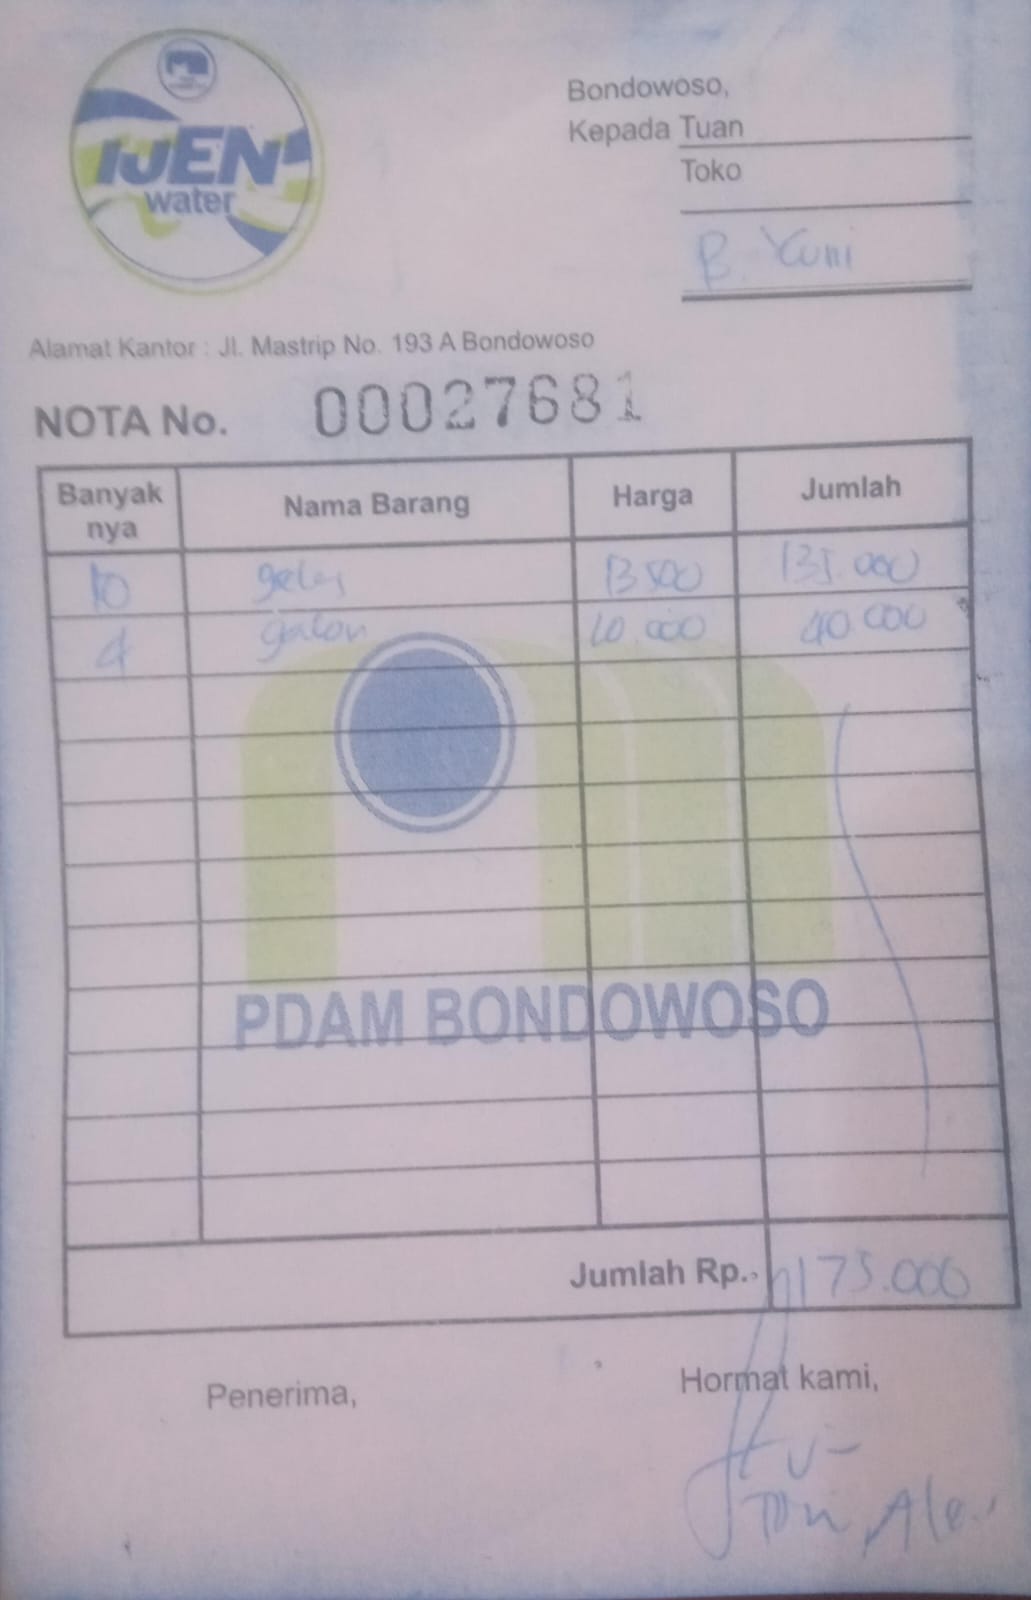 IJEN
water
Bondowoso,
Kepada Tuan
Toko
B. Yuni
Alamat Kantor : Jl. Mastrip No. 193 A Bondowoso
NOTA No. 00027681
Banyak nya Nama Barang Harga Jumlah
10 gelas 13 500 135.000
4 galon 10.000 40 000
PDAM BONDOWOSO
Jumlah Rp. 175.000
Penerima,
Hormat kami,